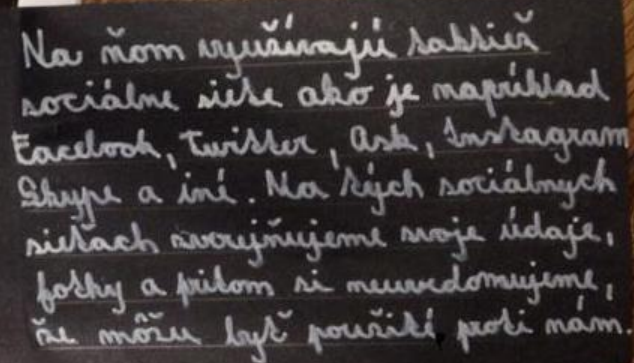 Na ňom využívajú taktiež
sociálne siete ako je napríklad
Facebook, Twitter, Ask, Instagram
Skype a iné. Na tých sociálnych
sieťach zverejňujeme svoje údaje,
fotky a pritom si neuvedomujeme,
že môžu byť použité proti nám.